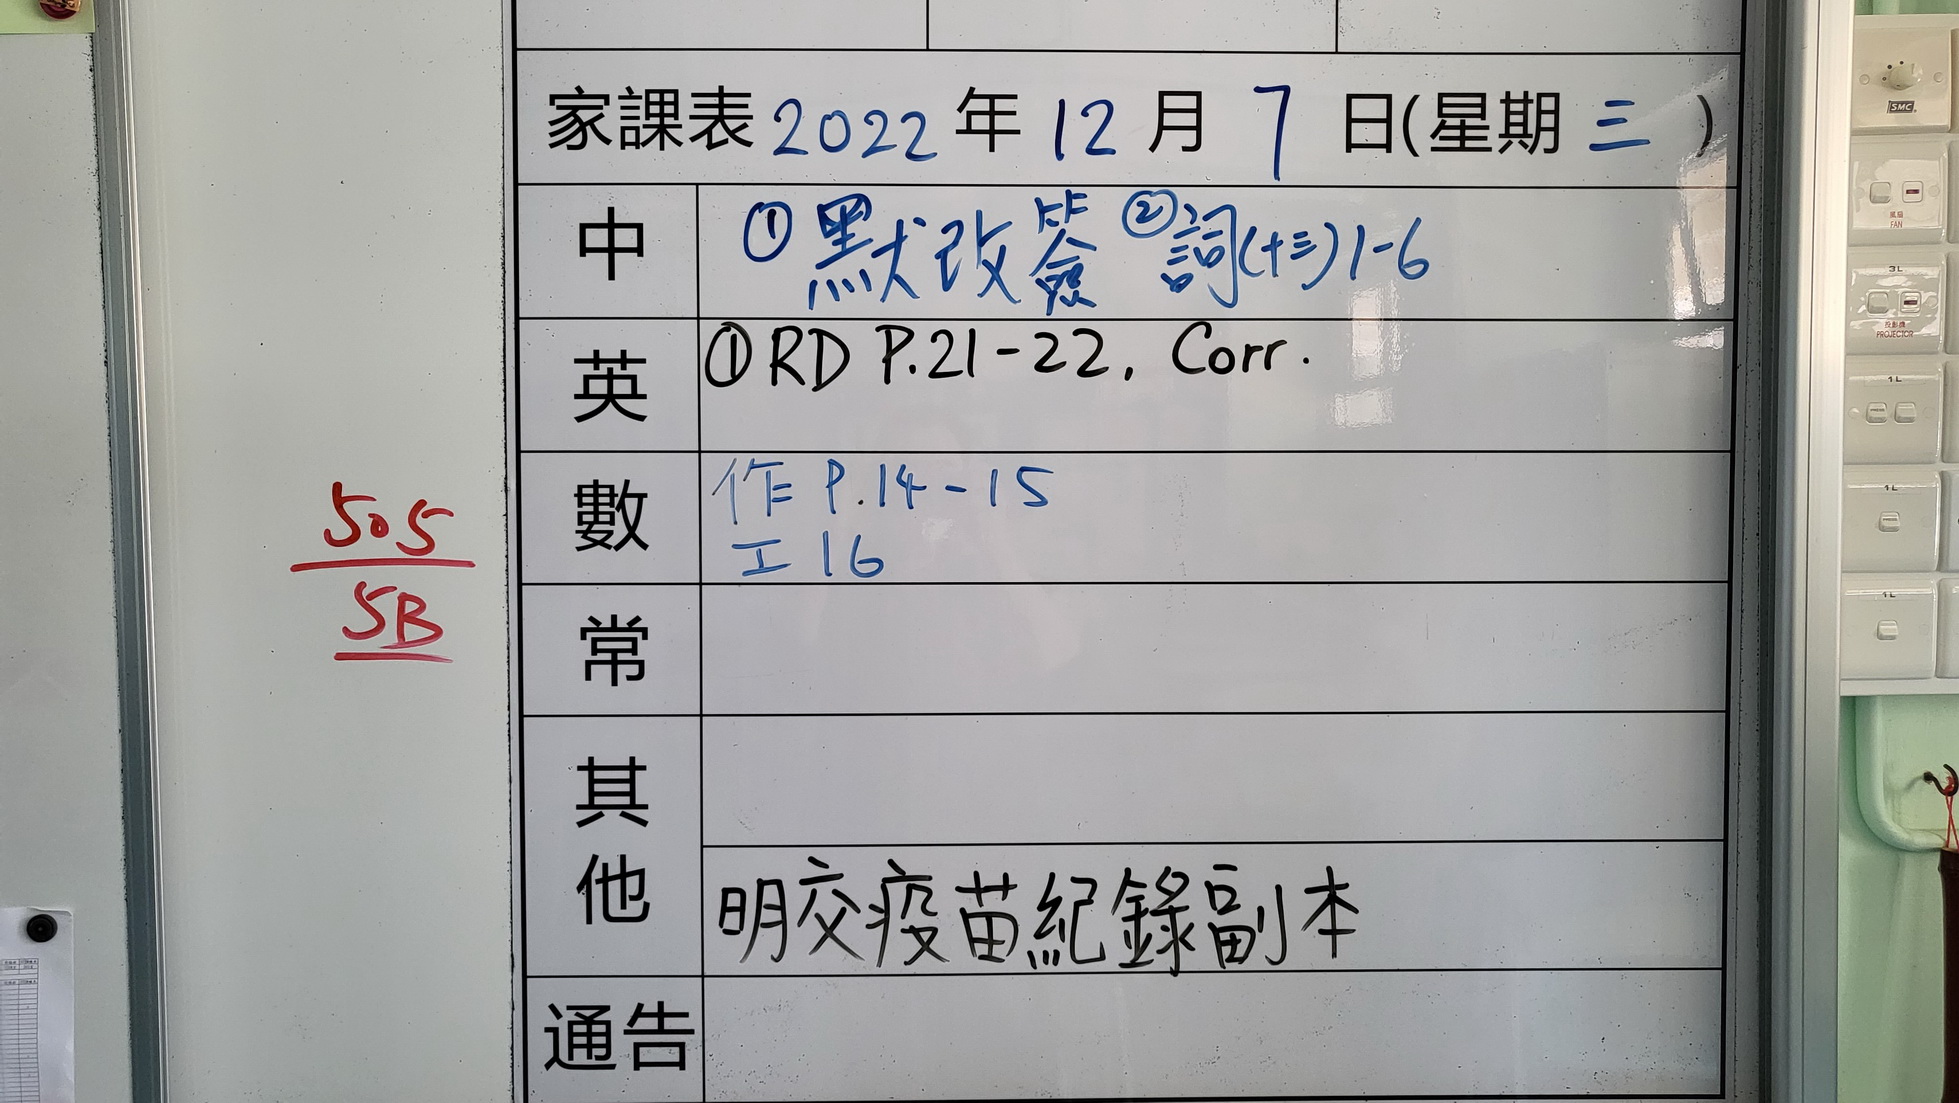 家課表 2022 年 12 月 7 日(星期 三 )
中 ① 默改簽 ② 詞(十三) 1-6
英 ① RD P.21-22, Corr.
數 作 P.14-15
工 16
常
其他
明交疫苗紀錄副本
通告
505
5B
SMC
風扇
FAN
3L
投影機
PROJECTOR
1L
1L
1L